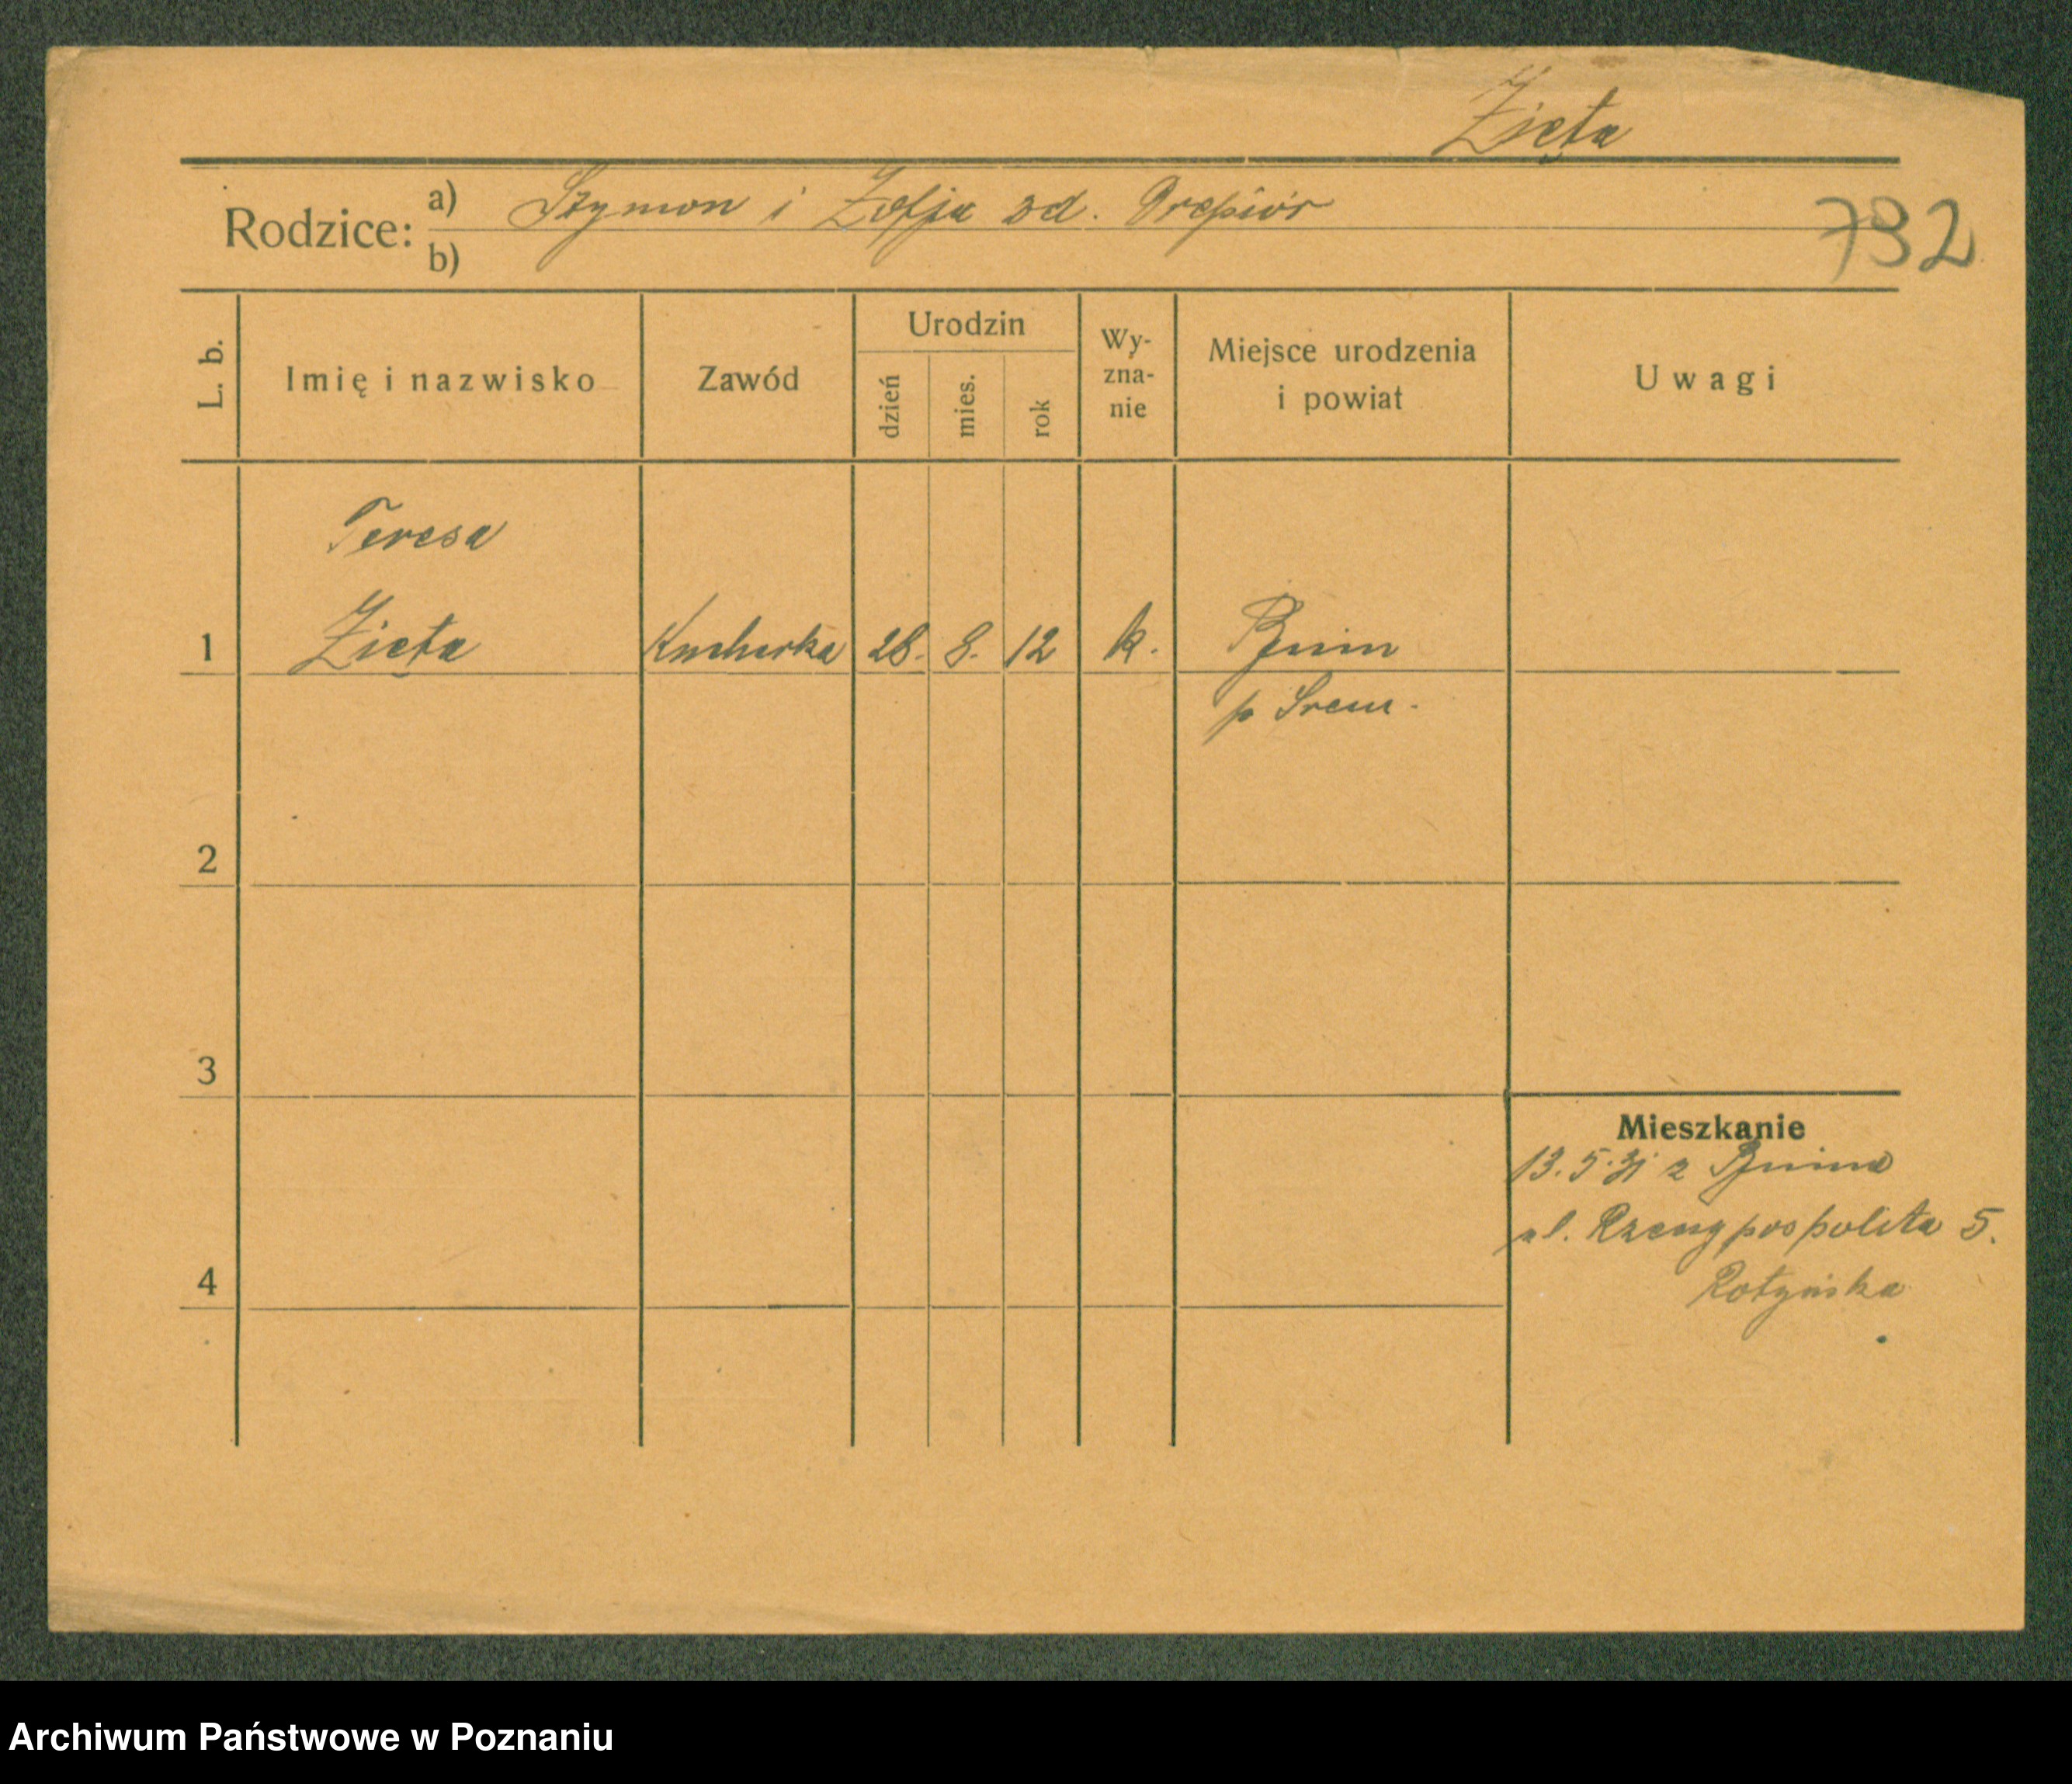 Zięta
Rodzice: a) Szymon i Zofja zd. Przepiór
b)
792
L. b.
Imię i nazwisko
Zawód
Urodzin
dzień
mies.
rok
Wy-
zna-
nie
Miejsce urodzenia
i powiat
Uwagi
Teresa
1 Zięta Kucharka 28. 8. 12 k. Bnin
p Śrem.
2
3
Mieszkanie
13.5.31 z Bnina
pl. Rzeczypospolita 5.
4
Archiwum Państwowe w Poznaniu